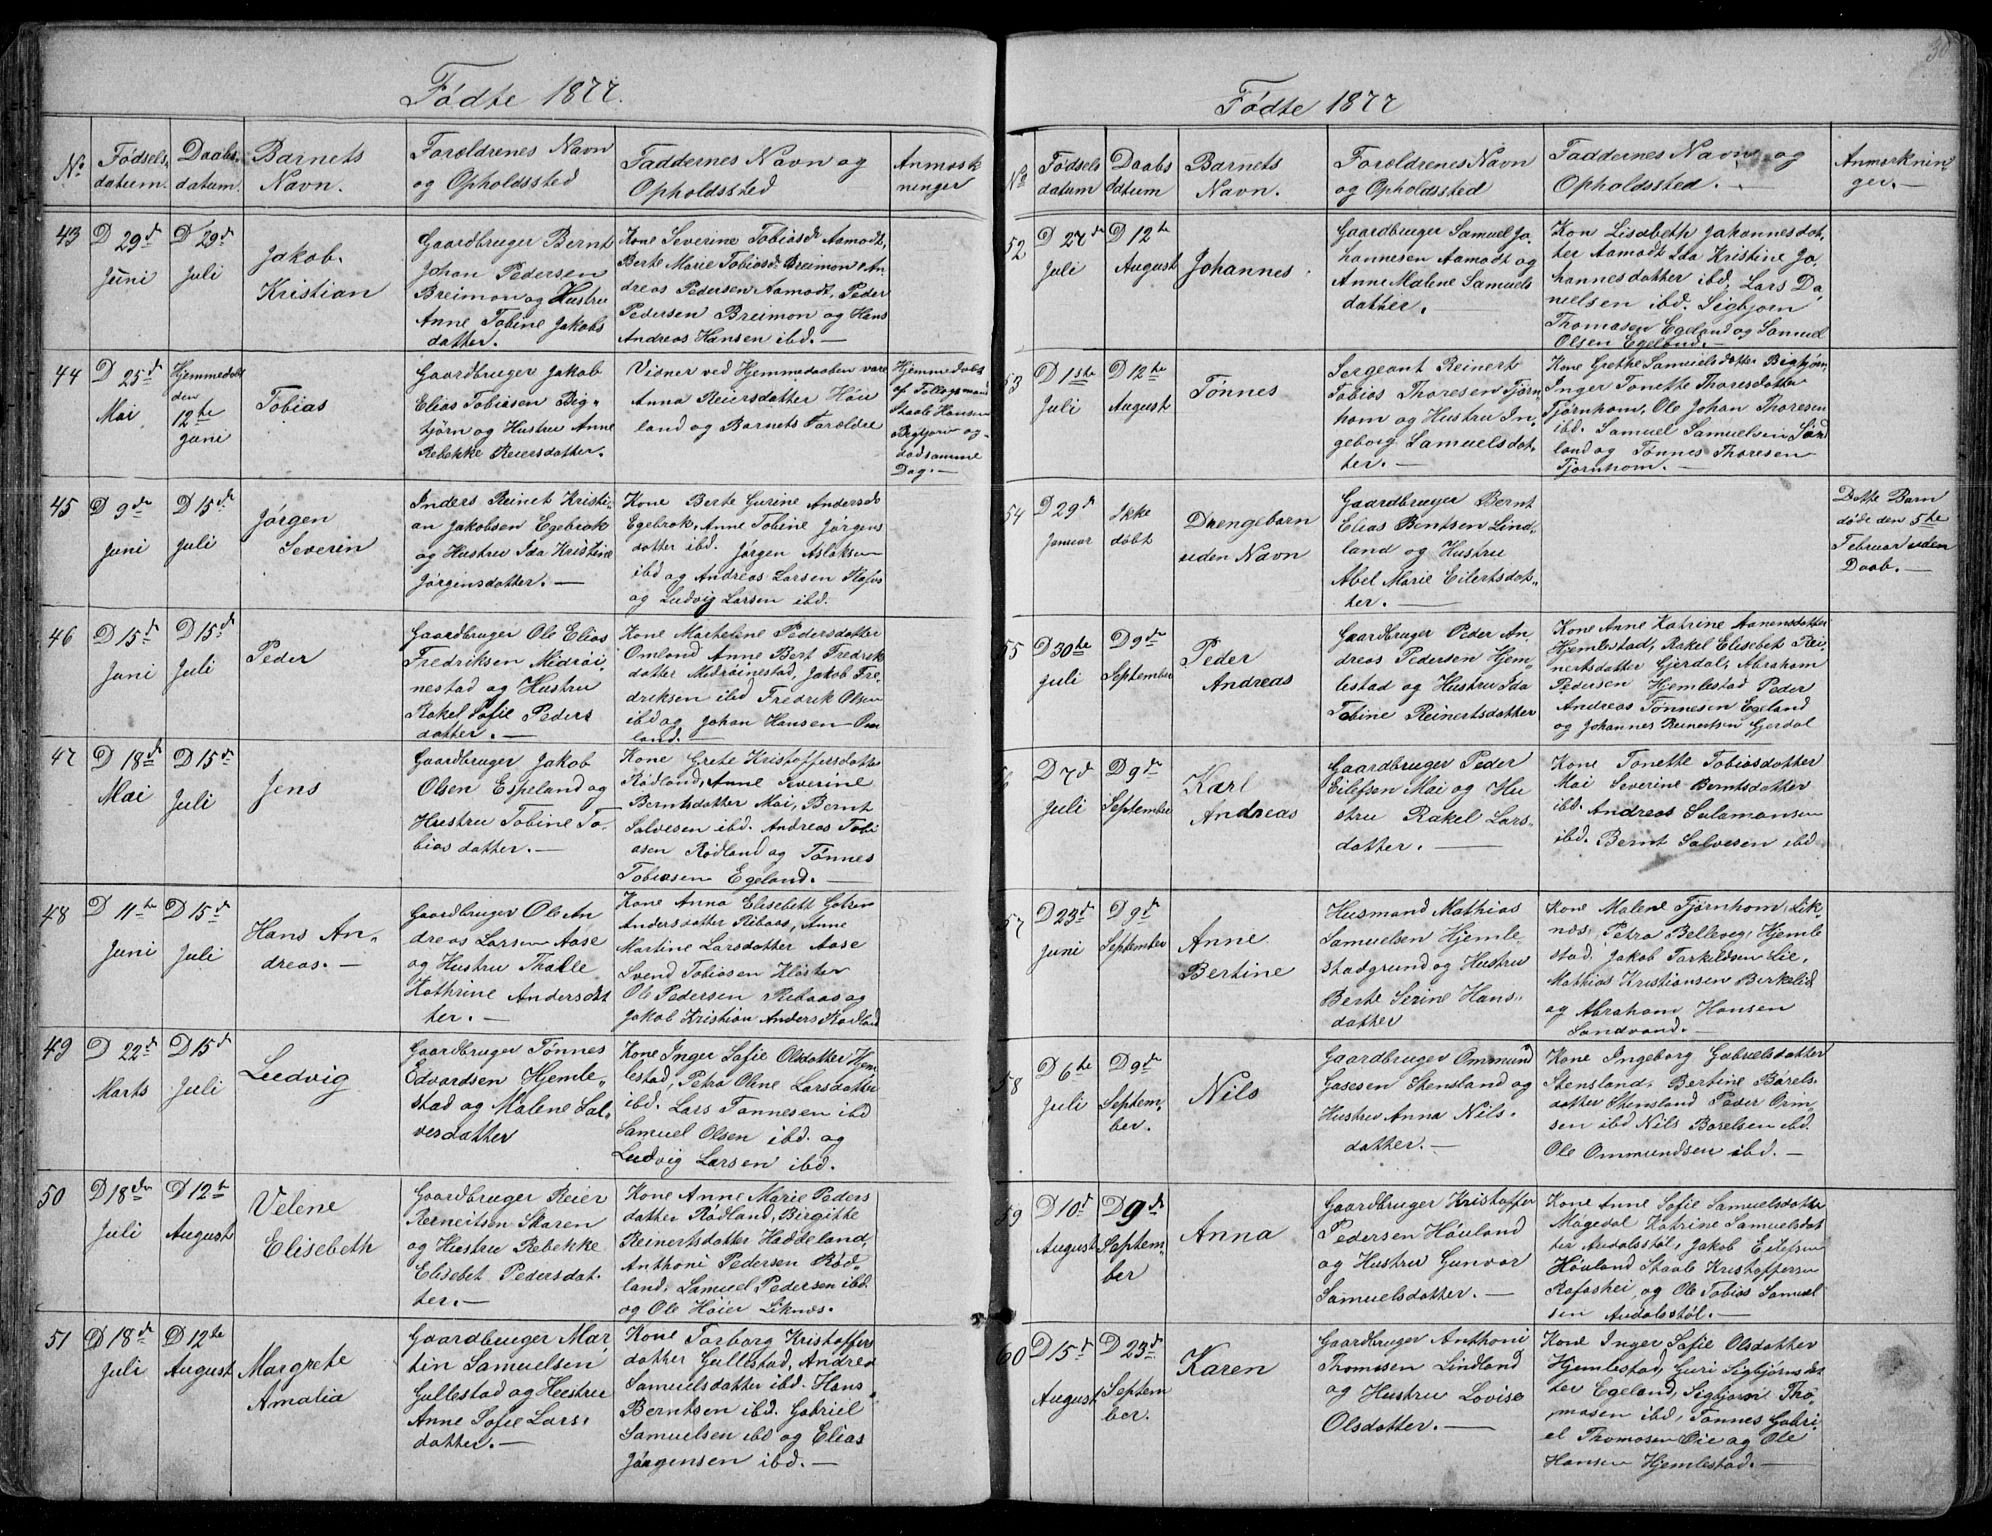 Fødte 1877.
No
Fødsels datum.
Daabs datum.
Barnets Navn.
Forældrenes Navn og Opholdssted
Faddernes Navn og Opholdssted
Anmærkninger
43
D 29d Juni
D 29d Juli
Jakob Kristian
Gaardbruger Bernt
Johan Pedersen
Breimon og Hustru
Anne Tobine Jakobs
datter.
Kone Severine Tobiasd. Aamodt,
Berte Marie Tobiasd. Breimon An
dreas Pedersen Aamodt, Peder
Pedersen Breimon og Hans
Andreas Hansen ibd. —
44
D 25d Mai
Hjemmedøbt
den
12te
Juni
Tobias
Gaardbruger Jakob
Elias Tobiasen Big„
tjørn og Hustru Anne
Rebekke Reiersdatter.
Vidner ved Hjemmedaaben vare
Anna Reiersdatter Høu
land og Barnets Forældre
Hjemmedøbt
af
Staale Hansen
Bigtjørn og
død samme
Dag. —
45
D 9de Juni
D 15d Juli
Jørgen
Severin
Inders Reinet Kristi-
an Jakobsen Egebrok
og Hustru Ida Kristine
Jørgensdatter. —
Kone Berte Gurine Andersd.
Egebrok, Anne Tobine Jørgens
datter ibd. Jørgen Aslaksen
ibd og Andreas Larsen
og Ludvig Larsen ibd.
46
D 15d Juni
D 15d Juli
Peder
Gaardbruger Ole Elias
Fredriksen Midrøi„
nestad og Hustru
Rakel Sofie Peders
datter. —
Kone Marthene Pedersdatter
Omland Anne Bert Fredrik
datter Midrøinestad, Jakob Fre„
driksen ibd Fredrik Olsen
ibd og Johan Hansen Om
land. —
47
D 18d Mai
D 15d Juli
Jens
Gaardbruger Jakob
Olsen Espeland og
Hustru Tobine To„
bias datter. —
Kone Grete Kristoffersdatter
Rødland, Anne Severine
Berntsdatter Mai, Bernt
Salvesen ibd. Andreas Tobi
asen Rødland og Tønnes
Tobiasen Egeland. —
48
D 11te Juni
D 15d Juli
Hans An„
dreas. —
Gaardbruger Ole An
dreas Larsen Aase
og Hustru Thalle
Kathrine Andersdat
ter. —
Kone Anna Elisebett
Andersdatter Ribaas, Anne
Martine Larsdatter Aase
Svend Tobiasen Kloster
Ole Pedersen Ribaas og
Jakob Kristian Anders Rødland
49
D 22d Marts
D 15d Juli
Ludvig
Gaardbruger Tønnes
Edvardsen Hjemle„
stad og Malene Sal„
versdatter
Kone Inger Sofie Olsdatter Hjem
lestad, Petra Olene Larsdatter
ibd. Lars Tønnesen ibd
Samuel Olsen ibd. og
Ludvig Larsen ibd.
50
D 18de Juli
D 12te August
Velene
Elisebeth
Gaardbruger Reier
Rerneitsen Skaren
og Hustru Rebekke
Elisebet Pedersdat„
ter. —
Kone Anne Marie Peders
datter Rødland, Birgitte
Reinertsdatter Haddeland,
Anthoni Pedersen Rød„
land, Samuel Pedersen ibd
og Ole Høier Liknæs.
51
D 18de Juli
D 12te August
Margrete
Amalia
Gaardbruger Mar„
tin Samuelsen
Gullestad og Hustru
Anne Sofie Lars„
datter. —
Kone Torborg Kristoffers
datter Gullestad, Andrea
Samuelsdatter ibd. Hans
Berntsen ibd. Gabriel
Samuelsen ibd og Elias
Jørgensen ibd. —
Fødte 1877
No
Fødsels datum
Daabs datum
Barnets Navn.
Forældrenes Navn og Opholdssted
Faddernes Navn og Opholdssted. —
Anmærkninger. —
52
D 27de Juli
D 12te August
Johannes.
Gaardbruger Samuel Jo„
hannesen Aamodt og
Anne Malene Samuels
datter.
Kon Lisabeth Johannesdat„
ter Aamodt Ida Kristine Jo
hannesdatter ibd, Lars Da
nielsen ibd. Sigbjørn
Thomasen Egeland og Samuel
Olsen Egeland. —
53
D 1ste Juli
D 12te August
Tønnes
Sergeant Reinert
Tobias Thoresen Tjørn
hom og Hustru In„
geborg Samuelsdat„
ter. —
Kone Grethe Samuelsdatter Bigtjørn,
Inger Tonette Thoresdatter
Tjørnhom, Ole Johan Thoresen
ibd. Samuel Samuelsen
land og Tønnes Thoresen
Tjørnhom. —
54
D 29d Januar
Ikke døbt
Drengebarn
uden Navn
Gaardbruger Bernt
Elias Bentsen Lind„
land og Hustru
Abel Marie Eilertsdat„
ter. —
Dette Barn
døde den 5te
Februar uden
Daab. —
55
D 30te Juli
D 9de September
Peder
Andreas
Gaardbruger Peder An„
dreas Pedersen Hjem„
lestad og Hustru Ida
Tobine Reinertsdatter
Kone Anne Katrine Aanensdatter
Hjemlestad, Rakel Elisebet Rei„
nertsdatter Gjerdal, Abraham
Pedersen Hjemlestad Peder
Andreas Tønnesen Egeland
og Johannes Reinertsen Gjerdal
56
D 7d Juli
D 9de September
Karl
Andreas
Gaardbruger Peder
Eilefsen Mai og Hu
stru Rakel Lars„
datter. —
Kone Tonette Tobiasdatter
Mai Severine Berntsdatter
ibd. Andreas Salamonsen
ibd. Bernt Salvesen ibd
57
D 23d Juni
D 9d September
Anne
Bertine
Husmand Mathias
Samuelsen Hjemle„
stadgrund og Hustru
Berte Serine Hans„
datter
Kone Malene Tjørnhom, Lik„
næs, Petra Bellevig, Hjemle
stad, Jakob Tarkildsen Lie,
Mathias Kristiansen Birkelid
og Abraham Hansen
Sandvand. —
58
D 6te Juli
D 9de Septem„
ber.
Nils
Gaardbruger Ommund
Gasesen Stensland og
Hustru Anna Nils„
datter. —
Kone Ingeborg Gabrielsdatter
Stensland, Bertine Børels„
datter Stensland Peder Orim„
sen ibd Nils Børelsen ibd.
Ole Ommundsen ibd. —
59
D 10d August
D 9de Septem„
ber
Anna
Gaardbruger Kristoffer
Pedersen Høuland
og Hustru Gunvor
Samuelsdatter. —
Kone Anne Sofie Samuelsdatter
Møgedal Katrine Samuelsdat
ter Audalsstøl, Jakob Eilefsen
Høuland Staale Kristoffersen
Rafoshei og Ole Tobias Samuel
sen Audalsstøl. —
60
D 15d August
D 23d Septem
ber.
Karen
Gaardbruger Anthoni
Thomasen Lindland
og Hustru Lovise
Olsdatter. —
Kone Inger Sofie Olsdatter
Hjemlestad, Guri Sigbjørnsdat
ter Egeland, Sigbjørn Tho„
masen ibd, Tønnes Gabri„
el Thomasen Øie og Ole
Hansen Hjemlestad. —